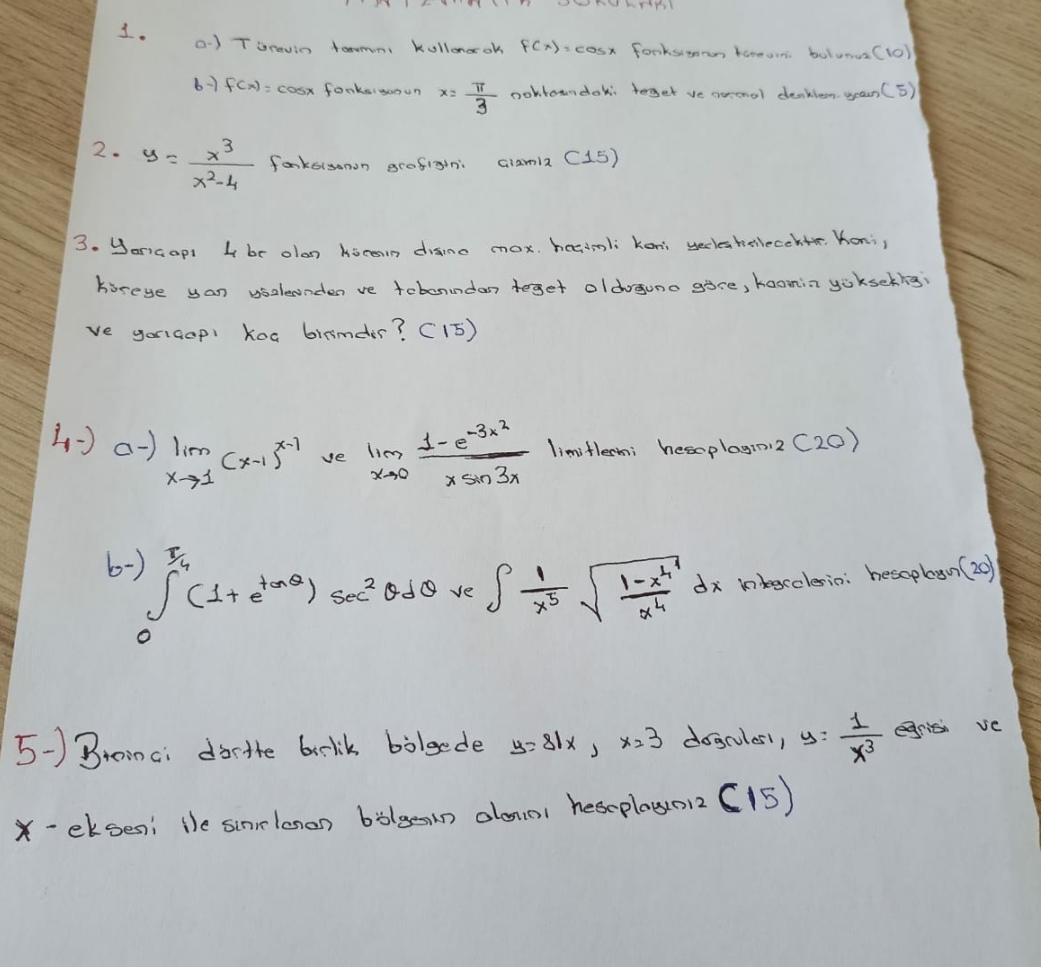 1. a-) Türevin tanımını kullanarak f(x)=cosx fonksiyonun türevini bulunuz (10)
b-) f(x)=cosx fonksiyonun x= π/3 noktasındaki teğet ve normal denklem yazın (5)
2. y= x³/(x²-4) fonksiyonun grafiğini çiziniz (15)
3. Yarıçapı 4 br olan kürenin dışına max. hacimli koni yerleştirilecektir. Koni,
küreye yan yüzlerinden ve tabanından teğet olduğuna göre, koninin yüksekliği
ve yarıçapı kaç birimdir? (15)
4-) a-) lim x→1 (x-1)^(x-1) ve lim x→0 (1-e^(-3x²))/(x sin3x) limitlerini hesaplayınız (20)
b-) ∫₀^(π/4) (1+e^(tanθ)) sec²θdθ ve ∫ 1/x⁵ √((1-x⁴)/x⁴) dx integrallerini hesaplayın (20)
5-) Birinci dörtte birlik bölgede y=81x, x=3 doğruları, y= 1/x³ eğrisi ve
x-ekseni ile sınırlanan bölgenin alanını hesaplayınız (15)